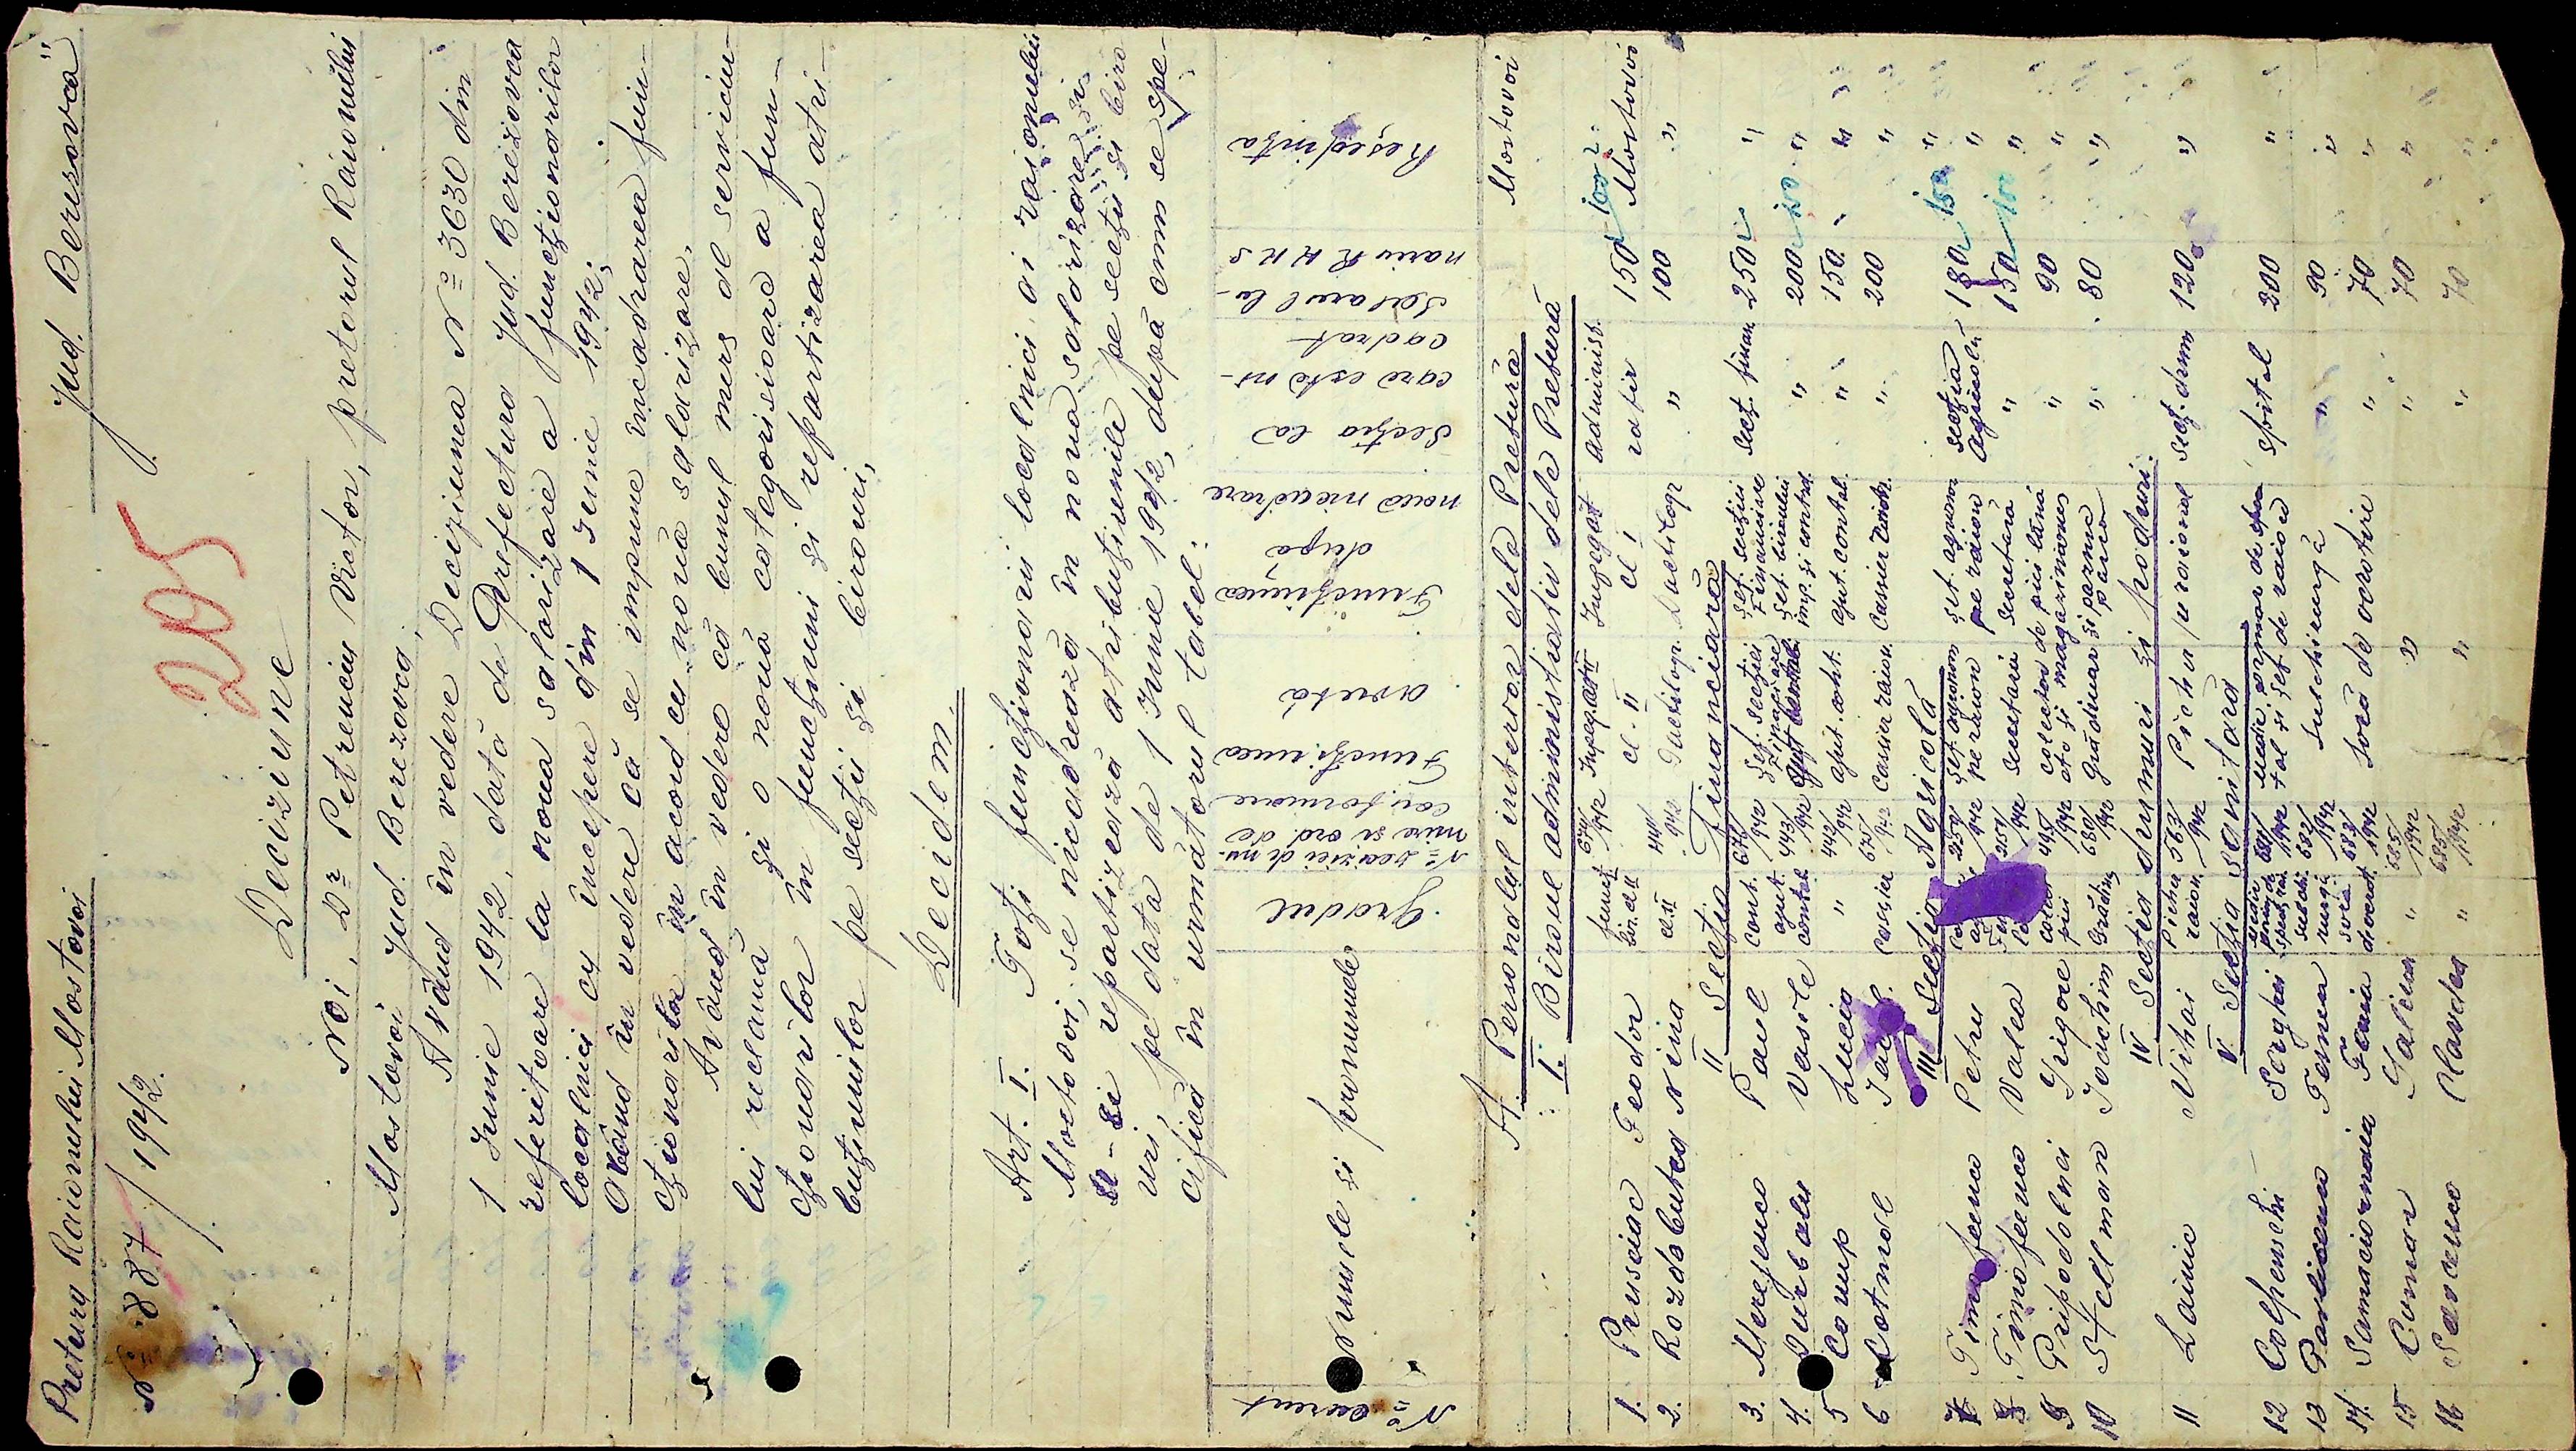 Pretura Raionului Mostovoi
Jud. Beresovca"
Nº 887 / 1942.
205
Deciziune
Noi, Dr Petrenciu Victor, pretorul Raionului
Mostovoi Jud. Berezovca,
Având în vedere Deciziunea Nº 3630 din
1 Junie 1942, dată de Prefectura Jud. Berezovca
referitoare la noua salarizare a funcționarilor
localnici cu începere din 1 Junie 1942;
Având în vedere că se impune încadrarea func-
ționarilor în acord cu noua salarizare.
Având în vedere că bunul mers al serviciu-
lui reclamă și o nouă categorisioare a func-
ționarilor în funcțiuni și repartizarea atri-
buțiunilor pe secții și birouri,
Decidem.
Art. I. Toți funcționarii localnici ai raionului
Mostovoi, se încadrează în noua salarizare și
li-se repartizează atribuțiunile pe secții și biro
uri, pe data de 1 Junie 1942, după cum se spe-
cifică în următorul tabel:
Nº curent
Numele și pronumele
Gradul
Nº deciziei de nu-
mire și ord. de
confirmare
Funcțiunea
avută
Funcțiunea
după
noua încadrare
Secția la
care este în-
cadrat
Salarul lu-
nar în R K K S
Reședința
A Personalul interior dela Pretură
I. Biroul administrativ dela Pretură Mostovoi
1. Prusciac Feodor funct. bir. cl II 674/942 Impegat cl. II Impegat cl I administ. rativ 150 100 Mostovoi
2. Rozdobutca Nina cl. II 441/942 Dactilogr. Dactilogr " 100 "
II Secția Financiară
3. Merejenco Paul cont. 676/942 Șef. secției Financiare Șef. secției Financiare secț. finan. 250 "
4. Durbalu Vasile ajut. contab. 443/942 Ajut. contab. Șef. biroului imp. și control. " 200 150 "
5 Camp Lucia " 442/942 ajut. cont. ajut. contab. " 150 "
6 Cotmal Jacob. casier 675/942 Casier raion. Casier " 200 "
III Secția Agricolă
7 Timofeenco Petru 259/942 Șef. agronom pe raion Șef. agronom pe raion secția Agricolă 180 150 "
8 Timofeenco Valea 257/942 secretară Secretară " 150 100 "
9 Pripodolnei Grigore colect. piei 445/942 colector de piei lână etc și magazioner " 90 "
10 Stellman Joachim Grădinar 680/942 Grădinar și paznic parc " 80 "
IV Secția drumuri și poduri.
11 Lainic Mihai Picher raion. 563/942 Picher raional secț. drum 120 "
V Secția sanitară
12 Colpenschi Serghei 681/1942 medic primar de spital și șef de raion spital 200 "
13 Pavlicenco 682/1942 Subchirurg " 90 "
14. Tania soră de ocrot. 683/1942 Soră de ocrotire " 70 "
15 Comar Galina " 685/1942 " " 70 "
16 Savenco Clavdea " 685/1942 " " 70 "